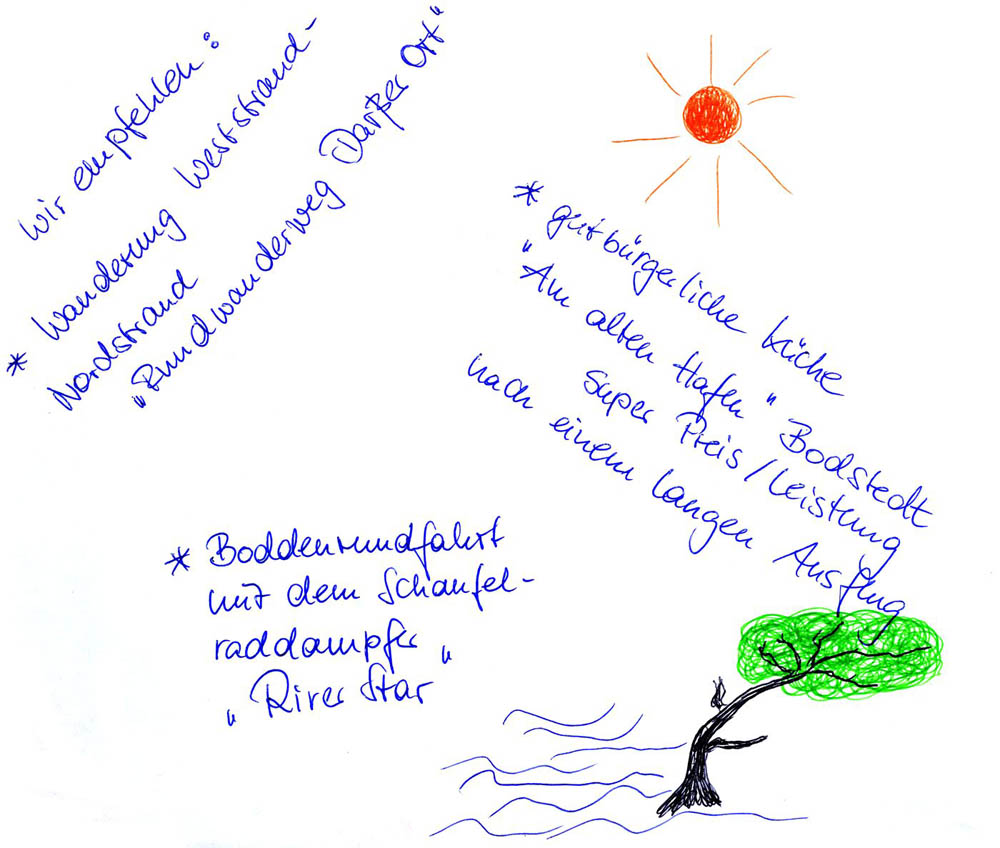 Wir empfehlen:
* Wanderung Weststrand-
Nordstrand
„Rundwanderweg Darßer Ort"
* gutbürgerliche Küche
"Am alten Hafen" Bodstedt
Super Preis/Leistung
nach einem langen Ausflug
* Boddenrundfahrt
mit dem Schaufel-
raddampfer
„River Star"